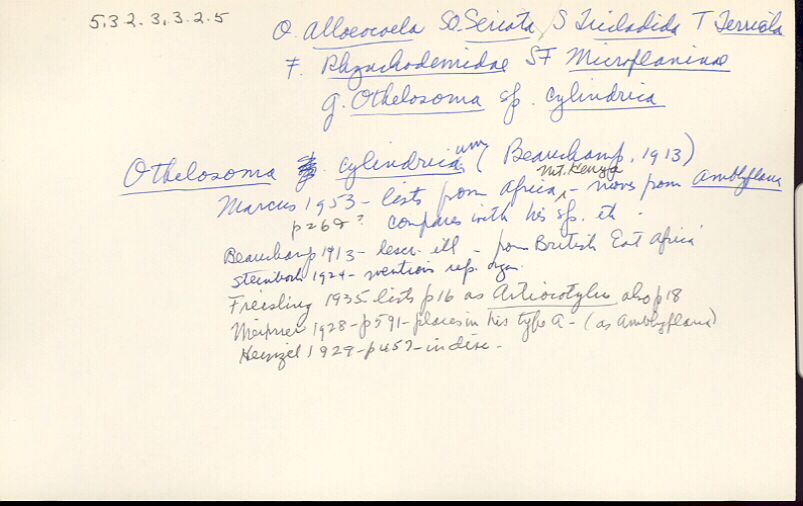 5.3 2. 3. 3. 2. 5
O. Alloeocoela SO. Seriata, S Tricladida T Terricola
F. Rhynchodemidae SF Microplaninae
g. Othelosoma sp. cylindrica
Othelosoma cylindricum (Beauchamp, 1913)
Marcus 1953 - lists from Africa, Mt. Kenya - moves from Amblyplana
p26 ? compares with his sp. eth.
Beauchamp 1913 - descr. ill - from British East Africa
Steinböck 1924 - mentions rep. organ.
Freisling 1935 lists p16 as Artiocotylus also p18
Meixner 1928 - p591 - places in his type A - (as Amblyplana)
Heinzel 1929 - p457 - in disc.